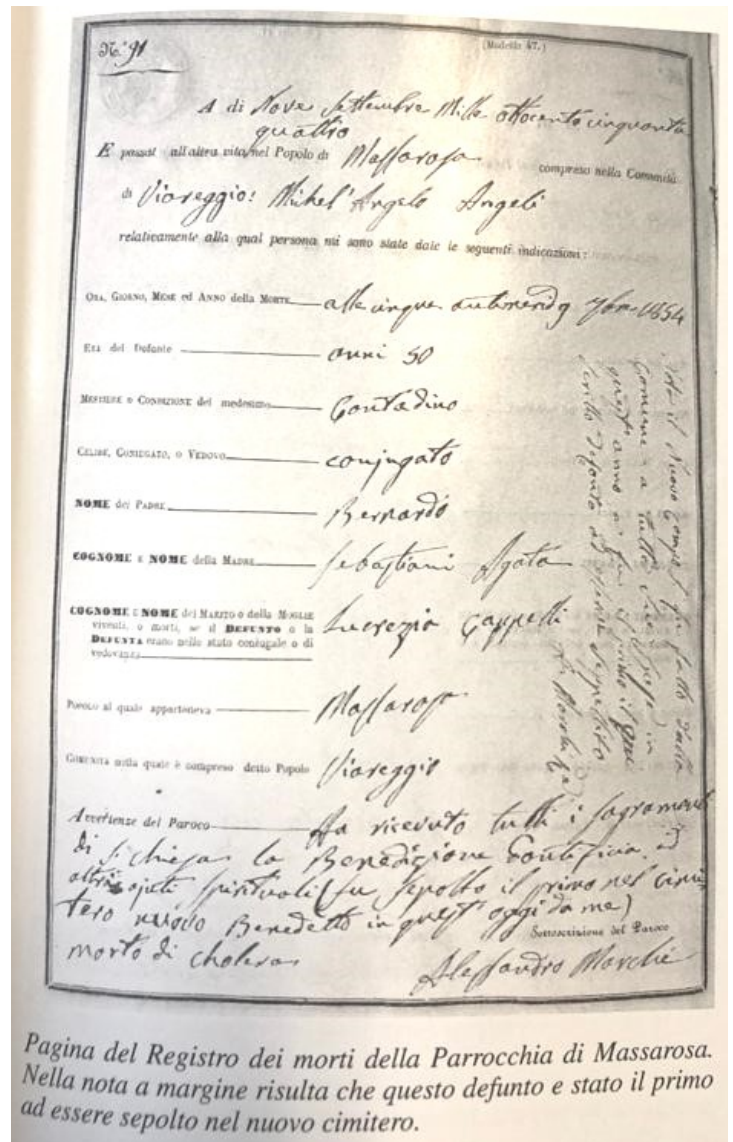 N.º 91
(Modello 47.)
A dì Nove Settembre Mille ottocento cinquanta
quattro
E passat all'altra vita nel Popolo di Massarosa compreso nella Comunità
di Viareggio: Michel'Angelo Angeli
relativamente alla qual persona mi sono state date le seguenti indicazioni:
ORA, GIORNO, MESE ed ANNO della MORTE alle cinque antimerid 9 7bre 1854
ETÀ del Defunto anni 50
MESTIERE o CONDIZIONE del medesimo Contadino
CELIBE, CONIUGATO, O VEDOVO conjugato
NOME del PADRE Bernardo
COGNOME E NOME della MADRE Sebastiani Agata
COGNOME E NOME del MARITO o della MOGLIE Lucrezia Cappelli
viventi, o morti, se il DEFUNTO o la
DEFUNTA erano nello stato coniugale o di
vedovanza
POPOLO al quale apparteneva Massarosa
COMUNITÀ nella quale è compreso detto Popolo Viareggio
Avvertenze del Paroco Ha ricevuto tutti i sagramenti
di S. chiesa la Benedizione Pontificia, ed
altri ajuti spirituali (fu sepolto il primo nel cimi
tero nuovo Benedetto in quest'oggi da me)
morto di cholera
Sottoscrizione del Paroco
Alessandro Marchi
il Nuovo Campo S. fu fatto dalla
Comune a tutte sue spese in
quest'anno e fu il primo il qui
defonto ad essere seppellito
Pagina del Registro dei morti della Parrocchia di Massarosa.
Nella nota a margine risulta che questo defunto e stato il primo
ad essere sepolto nel nuovo cimitero.